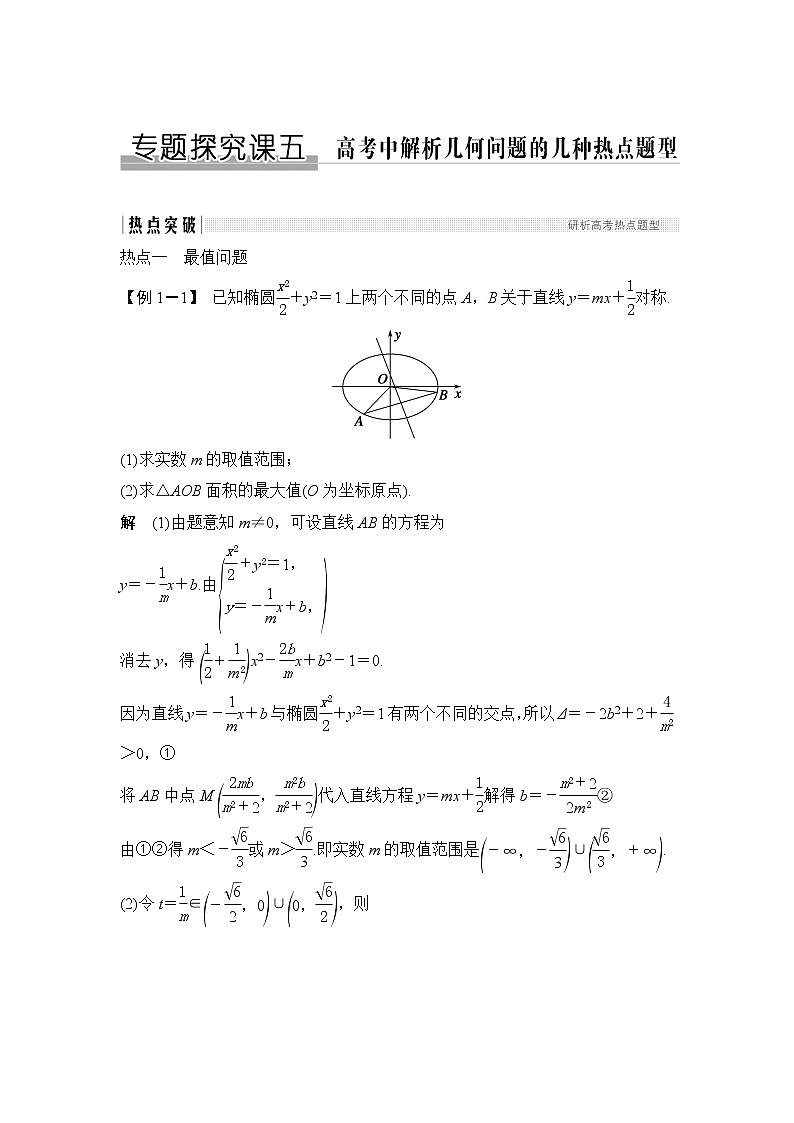 专题探究课五 高考中解析几何问题的几种热点题型
热点突破 研析高考热点题型
热点一 最值问题
【例1-1】 已知椭圆x²/2+y²=1上两个不同的点A，B关于直线y=mx+1/2对称.
y
O
B x
A
(1)求实数m的取值范围；
(2)求△AOB面积的最大值(O为坐标原点).
解 (1)由题意知m≠0，可设直线AB的方程为
y=-1/m x+b.由{x²/2+y²=1，
y=-1/m x+b，)
消去y，得(1/2+1/m²)x²-2b/m x+b²-1=0.
因为直线y=-1/m x+b与椭圆x²/2+y²=1有两个不同的交点，所以Δ=-2b²+2+4/m²
>0，①
将AB中点M(2mb/(m²+2)，m²b/(m²+2))代入直线方程y=mx+1/2解得b=-(m²+2)/(2m²)②
由①②得m<-√6/3或m>√6/3.即实数m的取值范围是(-∞，-√6/3)∪(√6/3，+∞).
(2)令t=1/m∈(-√6/2，0)∪(0，√6/2)，则